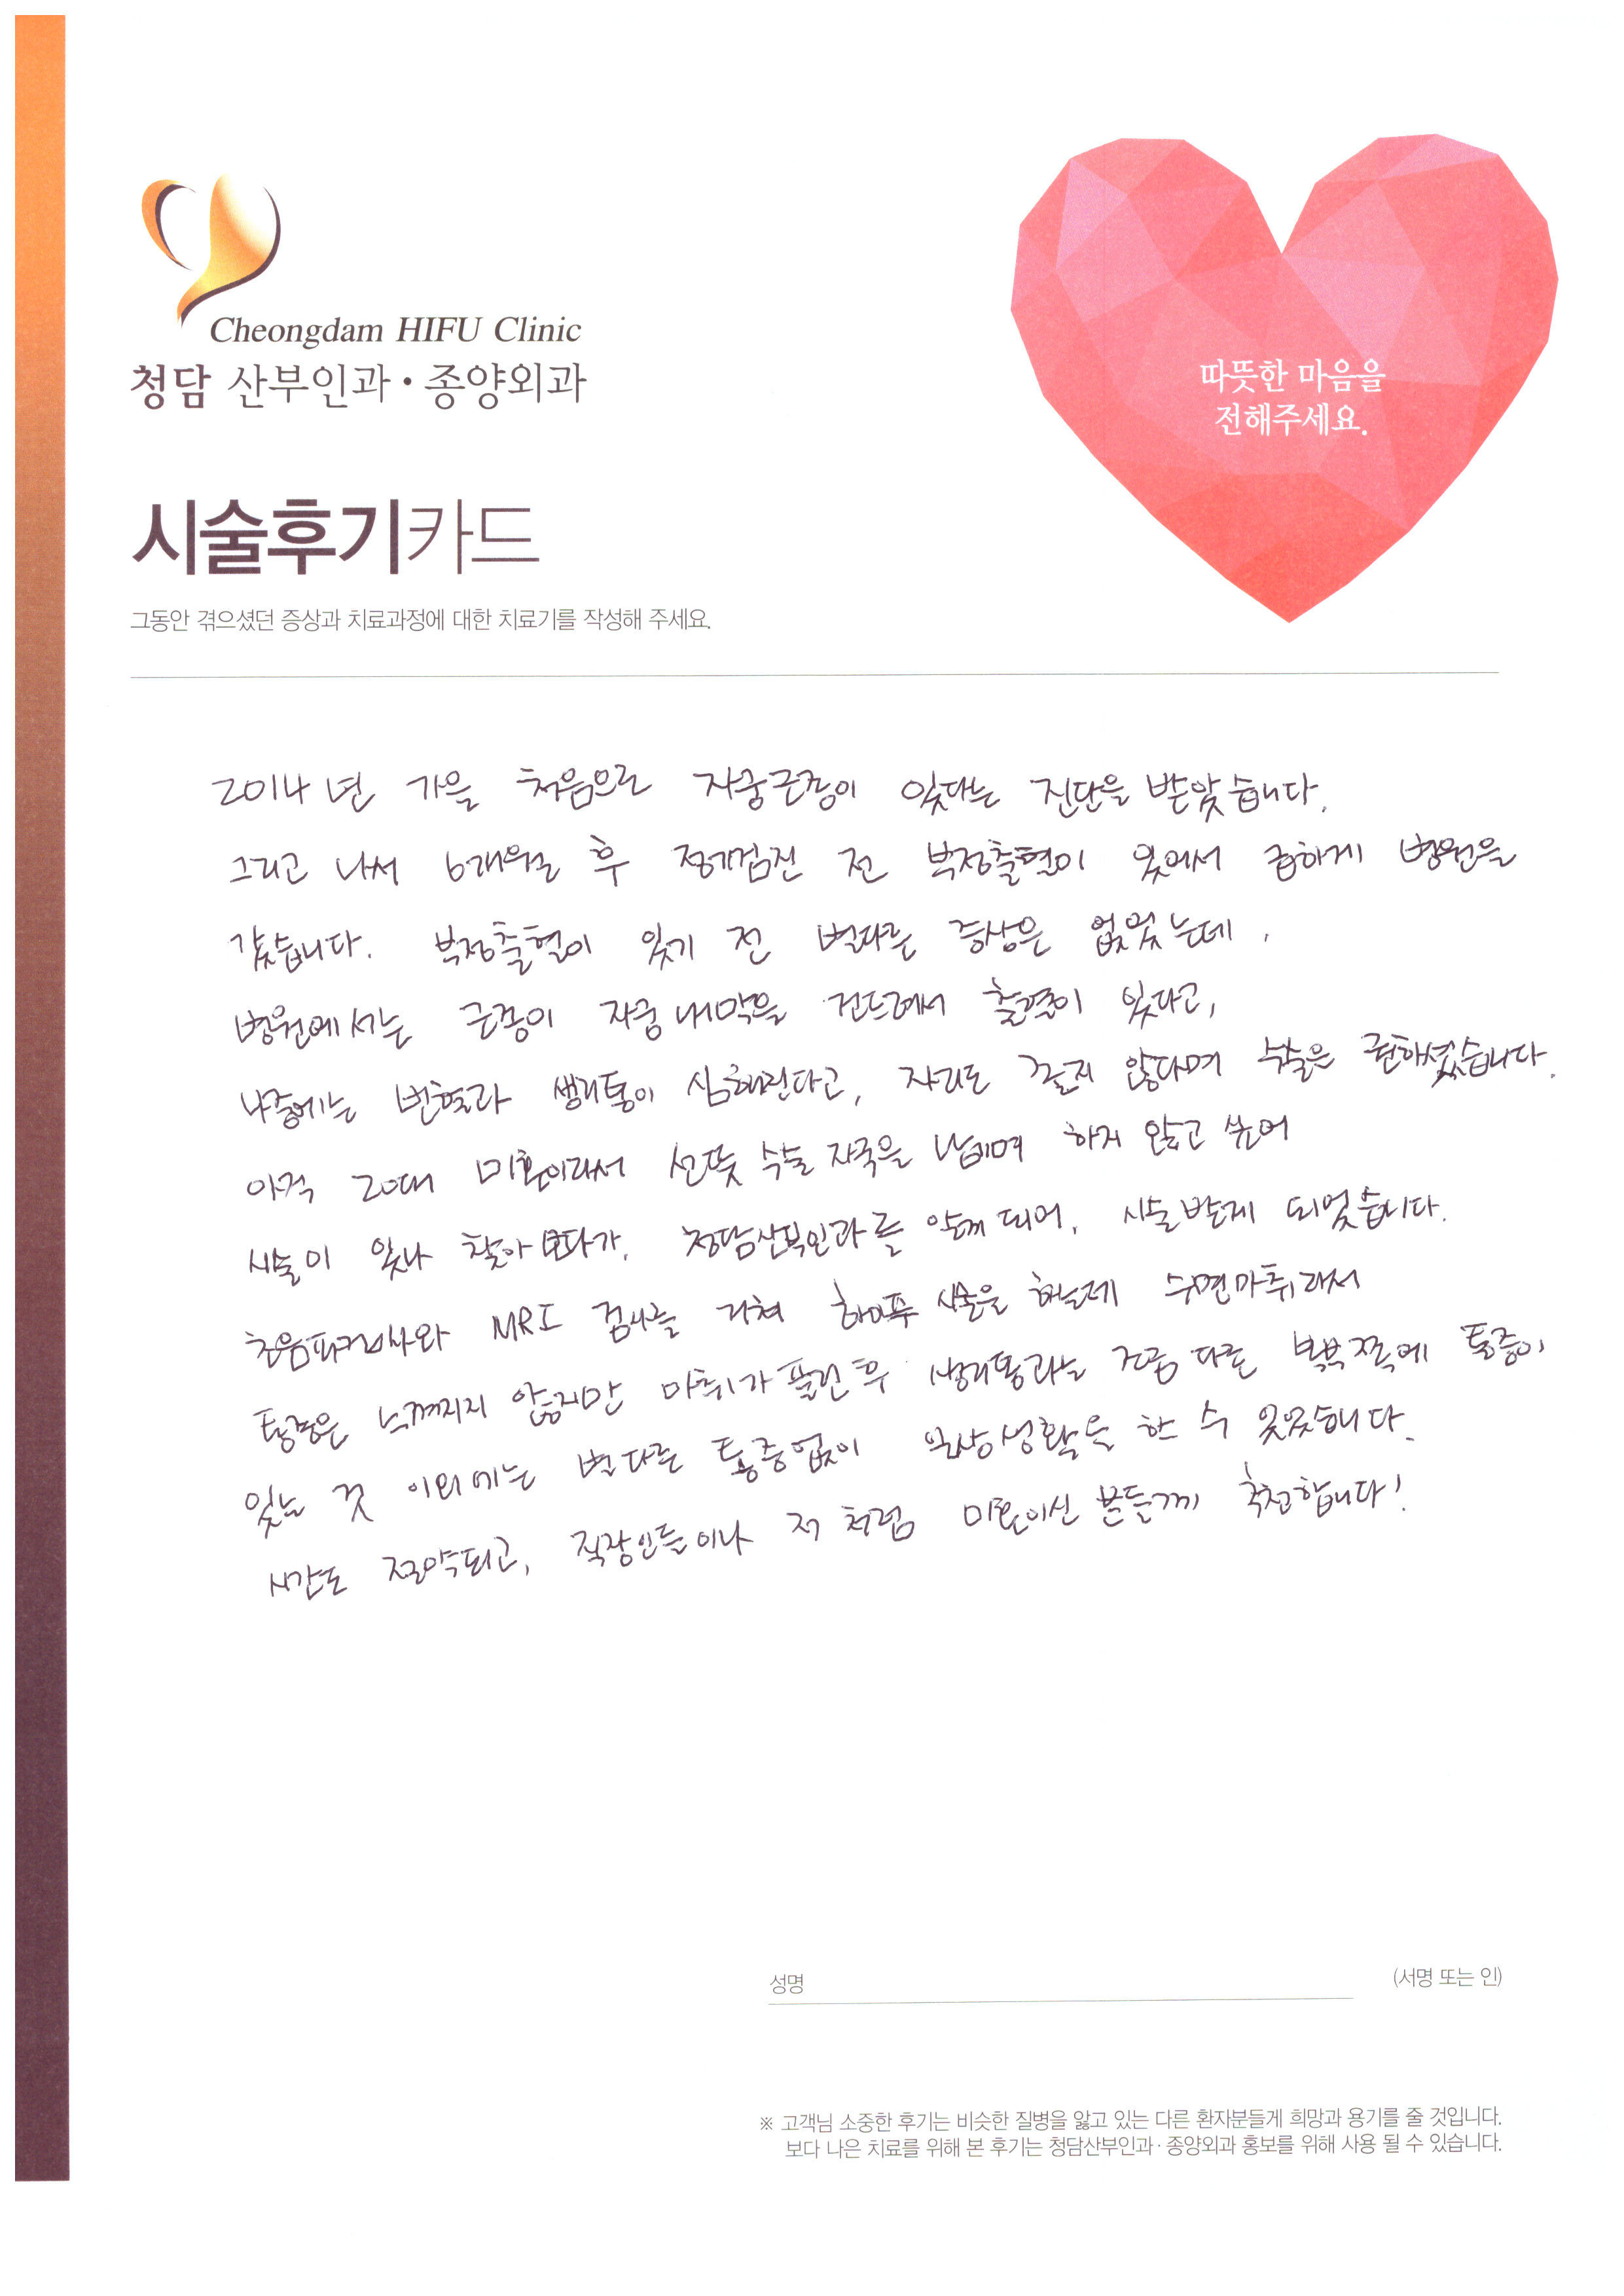 Cheongdam HIFU Clinic
청담 산부인과·종양외과
따뜻한 마음을
전해주세요.
시술후기카드
그동안 겪으셨던 증상과 치료과정에 대한 치료기를 작성해 주세요.
2014년 가을 처음으로 자궁근종이 있다는 진단을 받았습니다.
그리고 나서 6개월 후 정기검진 전 부정출혈이 있어서 급하게 병원을
갔습니다. 부정출혈이 있기 전 별다른 증상은 없었는데,
병원에서는 근종이 자궁내막을 건드려서 출혈이 있다고,
나중에는 빈혈과 생리통이 심해진다고, 자리도 좋지 않다며 수술을 권하셨습니다.
아직 20대 미혼이라서 선뜻 수술 자국을 남기며 하지 않고 싶어
시술이 있나 찾아보다가, 청담산부인과를 알게 되어, 시술받게 되었습니다.
초음파검사와 MRI 검사를 거쳐 하이푸 시술을 했는데 수면마취라서
통증은 느껴지지 않지만 마취가 풀린 후 생리통과는 조금 다른 복부쪽에 통증이
있는 것 이외에는 별다른 통증없이 일상생활을 할 수 있었습니다.
시간도 절약되고, 직장인들이나 저처럼 미혼이신 분들께 추천합니다!
성명
(서명 또는 인)
※ 고객님 소중한 후기는 비슷한 질병을 앓고 있는 다른 환자분들게 희망과 용기를 줄 것입니다.
보다 나은 치료를 위해 본 후기는 청담산부인과·종양외과 홍보를 위해 사용 될 수 있습니다.